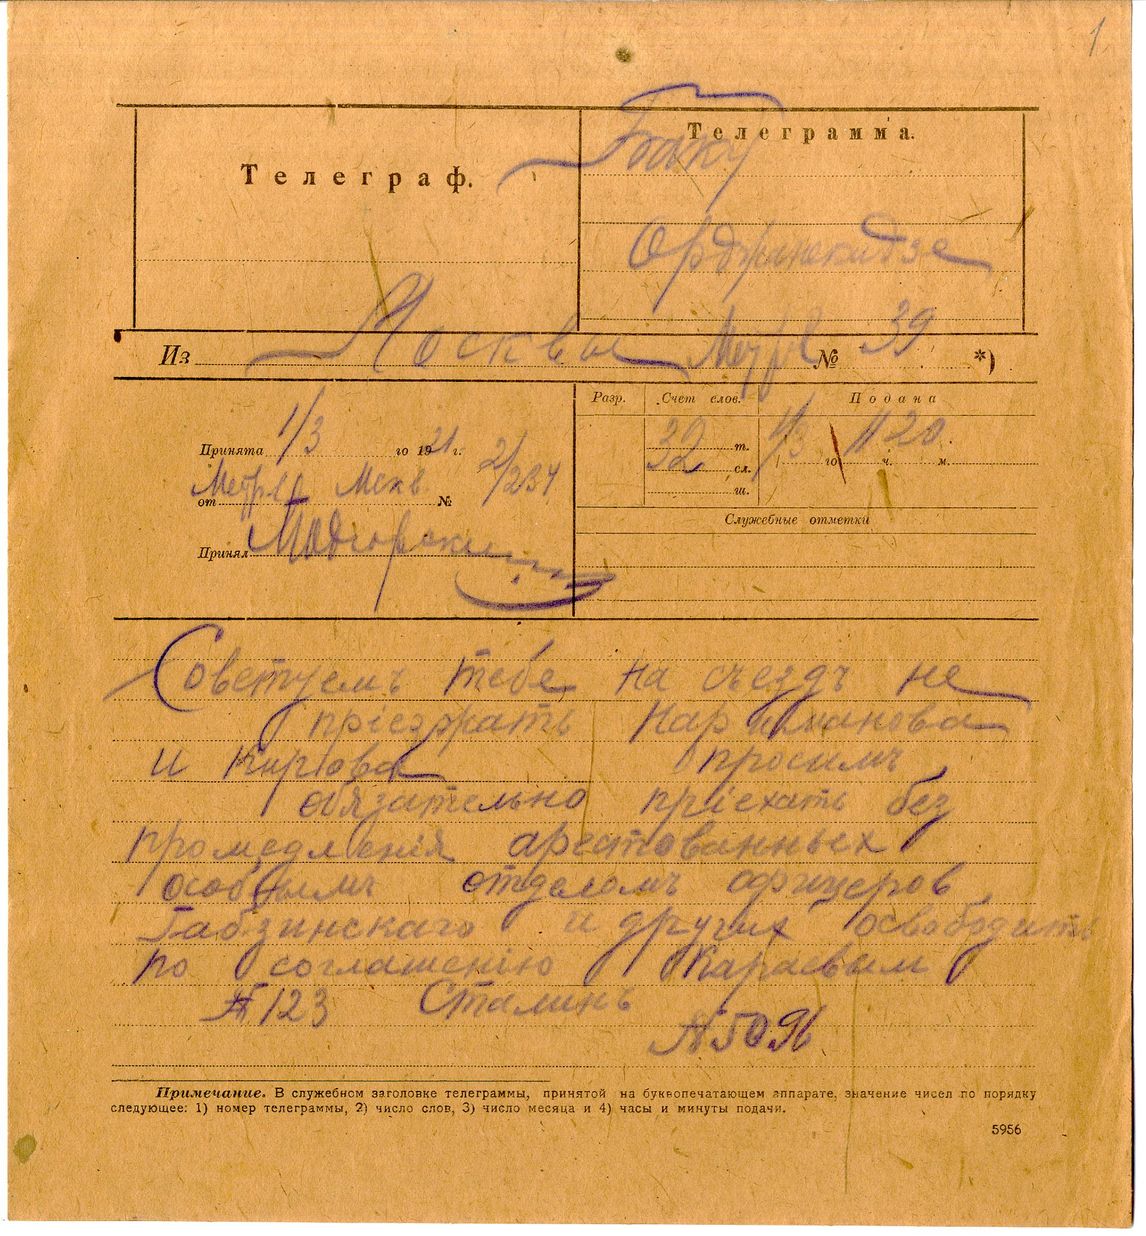 1
Телеграф.
Телеграмма.
Баку
Орджоникидзе
Из Москвы № 39 *)
Принята 1/3 го 1921 г.
от Мскв № 2/234
Принял
Разр. Счет слов. Подана
т. 1/3 го ч. 20 м.
32 сл.
ш.
Служебные отметки
Советуемъ тебе на съездъ не
прiезжать Нариманова
и Кирова просимъ
обязательно прiехать без
промедленiя арестованных
особымъ отделомъ офицеров
Габзинскаго и других освободить
по соглашенiю Караевым
№ 123 Сталинъ
№ 5096
Примечание. В служебном заголовке телеграммы, принятой на буквопечатающем аппарате, значение чисел по порядку
следующее: 1) номер телеграммы, 2) число слов, 3) число месяца и 4) часы и минуты подачи.
5956